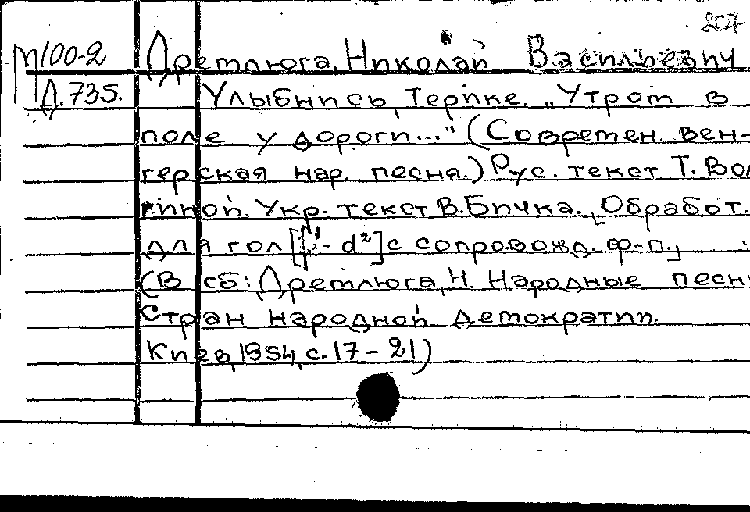 257
М100-2 Дремлюга, Николай Васильевич
Д.735. Улыбнись, Терпке. „Утром в
поле у дороги..." (Современ. вен-
герская нар. песня.) Рус. текст Т. Вол
гиной. Укр. текст В. Бичка. Обработ.
для гол [f¹- d²] с сопровожд. ф-п.,
(В сб: Дремлюга, Н. Народные песни
Стран народной демократии.
Киев, 1954, с. 17 - 21)